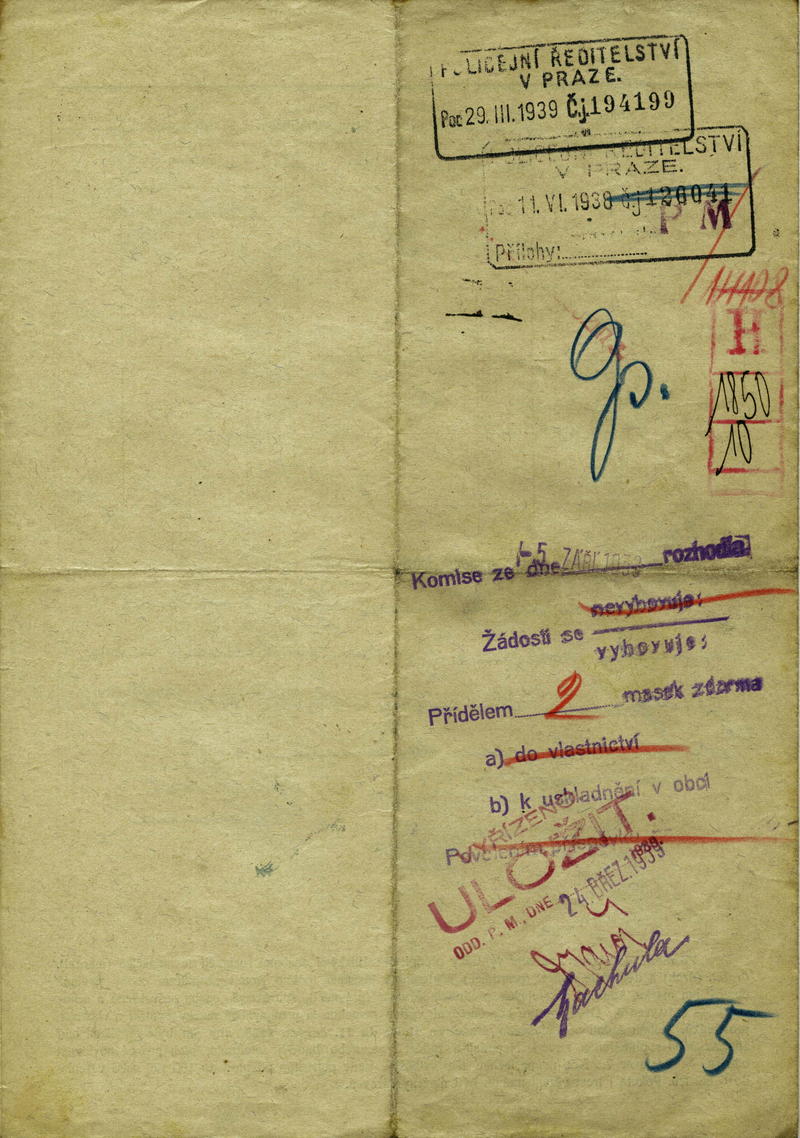 POLICEJNÍ ŘEDITELSTVÍ
V PRAZE.
Poč 29. III. 1939 Čj. 194199
POLICEJNÍ ŘEDITELSTVÍ
V PRAZE.
11. VI. 1938 čj 126041
P M
Přílohy:
H
1850
10
Komise ze dne 1-5 ZÁŘÍ 1938 rozhodla
nevyhovuje:
Žádosti se
vyhovuje:
Přídělem 2 masek zdarma
a) do vlastnictví
b) k uskladnění v obci
VYŘÍZENO
ULOŽIT.
ODD. P. M., DNE 24. BŘEZ. 1939
55